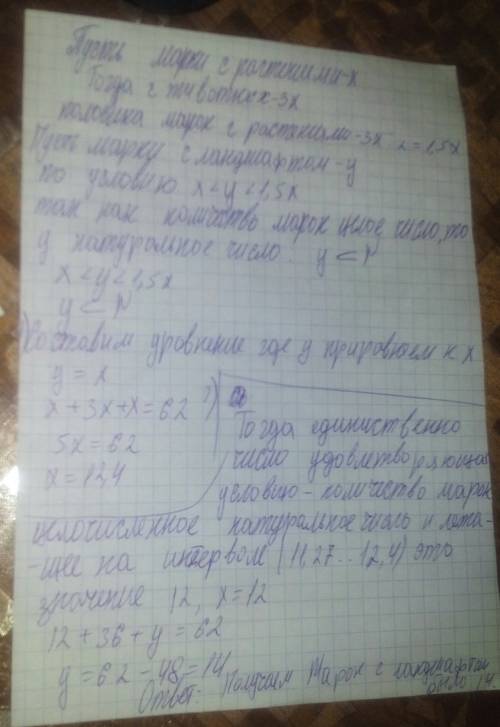 Пусть марки с растениями-x
Тогда с животных-3x
половика марок с растениями-3x : 2=1,5x
Пусть марки с ландшафтом-y
по условию x<y<1,5x
так как количество марок целое число, то
y натуральное число. y ⊂ N
x<y<1,5x
y ⊂ N
Составим уровнение где y прировняем к x
y = x
x+3x+x=62
5x=62
x=12,4
2)
Тогда единиственно
число удовлетворяющая
условию-количиство марок
целочисленное натуральное число и лежа-
-щее на интервом (11,27...12,4) это
значение 12, x=12
12+36+y=62
y=62-48=14
Ответ: Получаем марок с ландшафтом
было 14